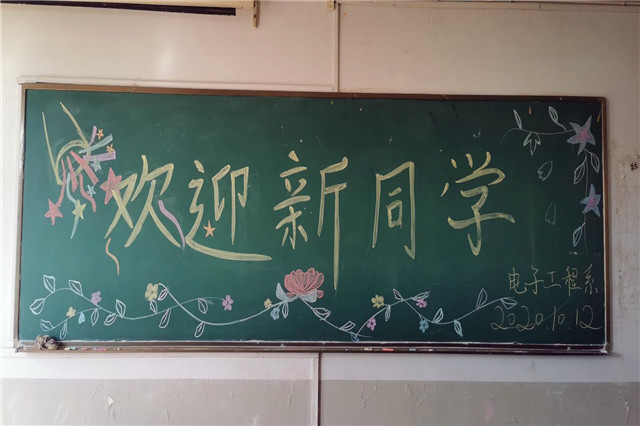 欢迎新同学
电子工程系
2020.10.12